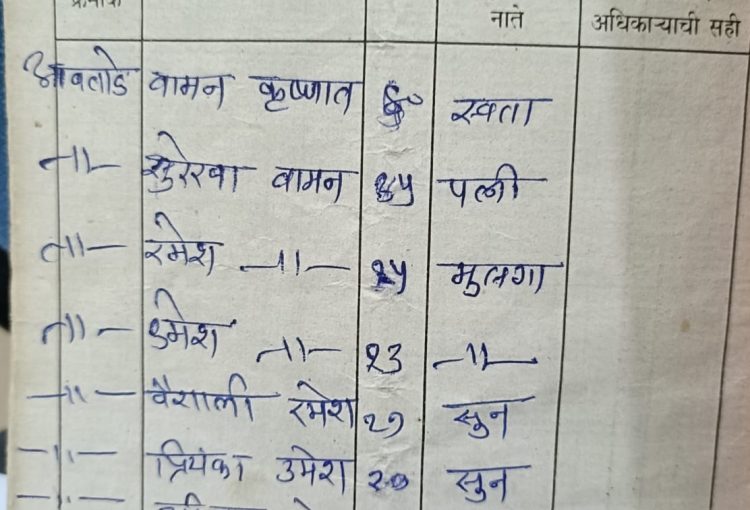 क्रमांक नाते अधिकाऱ्याची सही
आवताडे वामन कृष्णात स्वता
—॥— सुरेखा वामन ४५ पत्नी
—॥— रमेश —॥— २५ मुलगा
—॥— उमेश —॥— २३ —॥—
—॥— वैशाली रमेश २१ सुन
—॥— प्रियंका उमेश २० सुन
—॥—